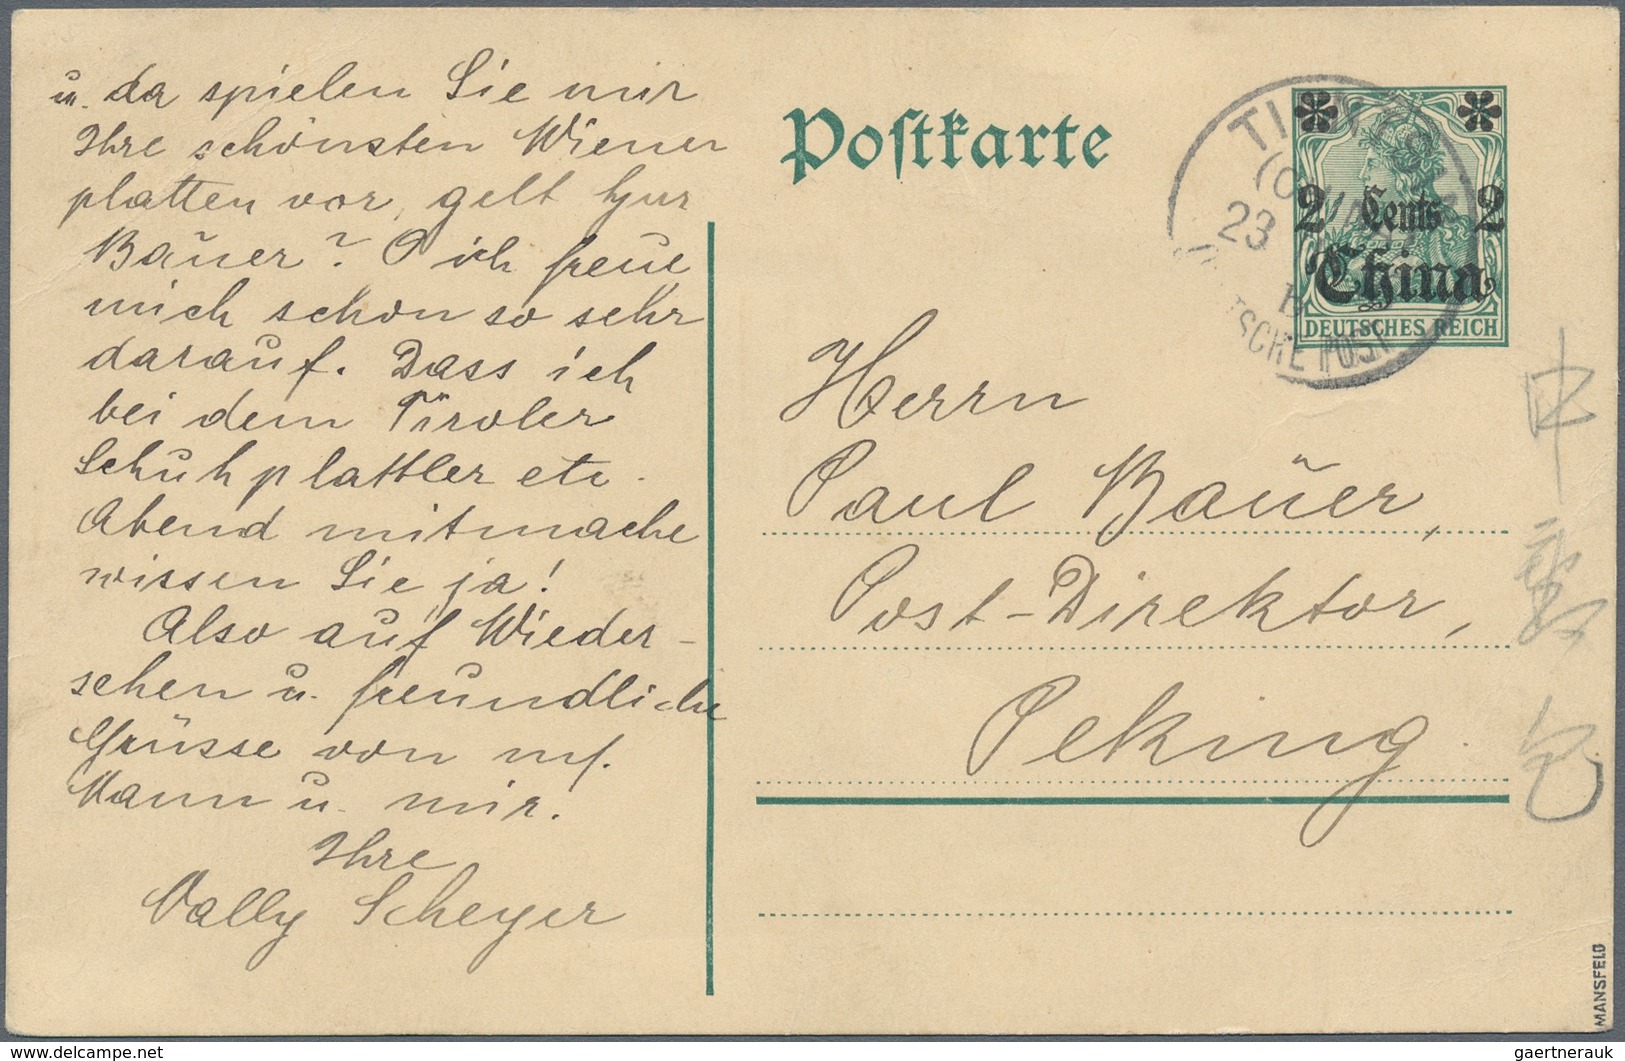 u. da spielen Sie mir
Ihre schönsten Wiener
platten vor, gelt Herr
Bauer? O ich freue
mich schon so sehr
darauf. Dass ich
bei dem Tiroler
Schuhplattler etc.
Abend mitmache
wissen Sie ja!
Also auf Wieder-
sehen u. freundliche
Grüsse von m.
Mann u. mir.
Ihre
Vally Scheyer
Postkarte
23
2 Cents 2
China
DEUTSCHES REICH
Herrn
Paul Bauer,
Post-Direktor,
Peking
MANSFELD
www.delcampe.net
gaertnerauk